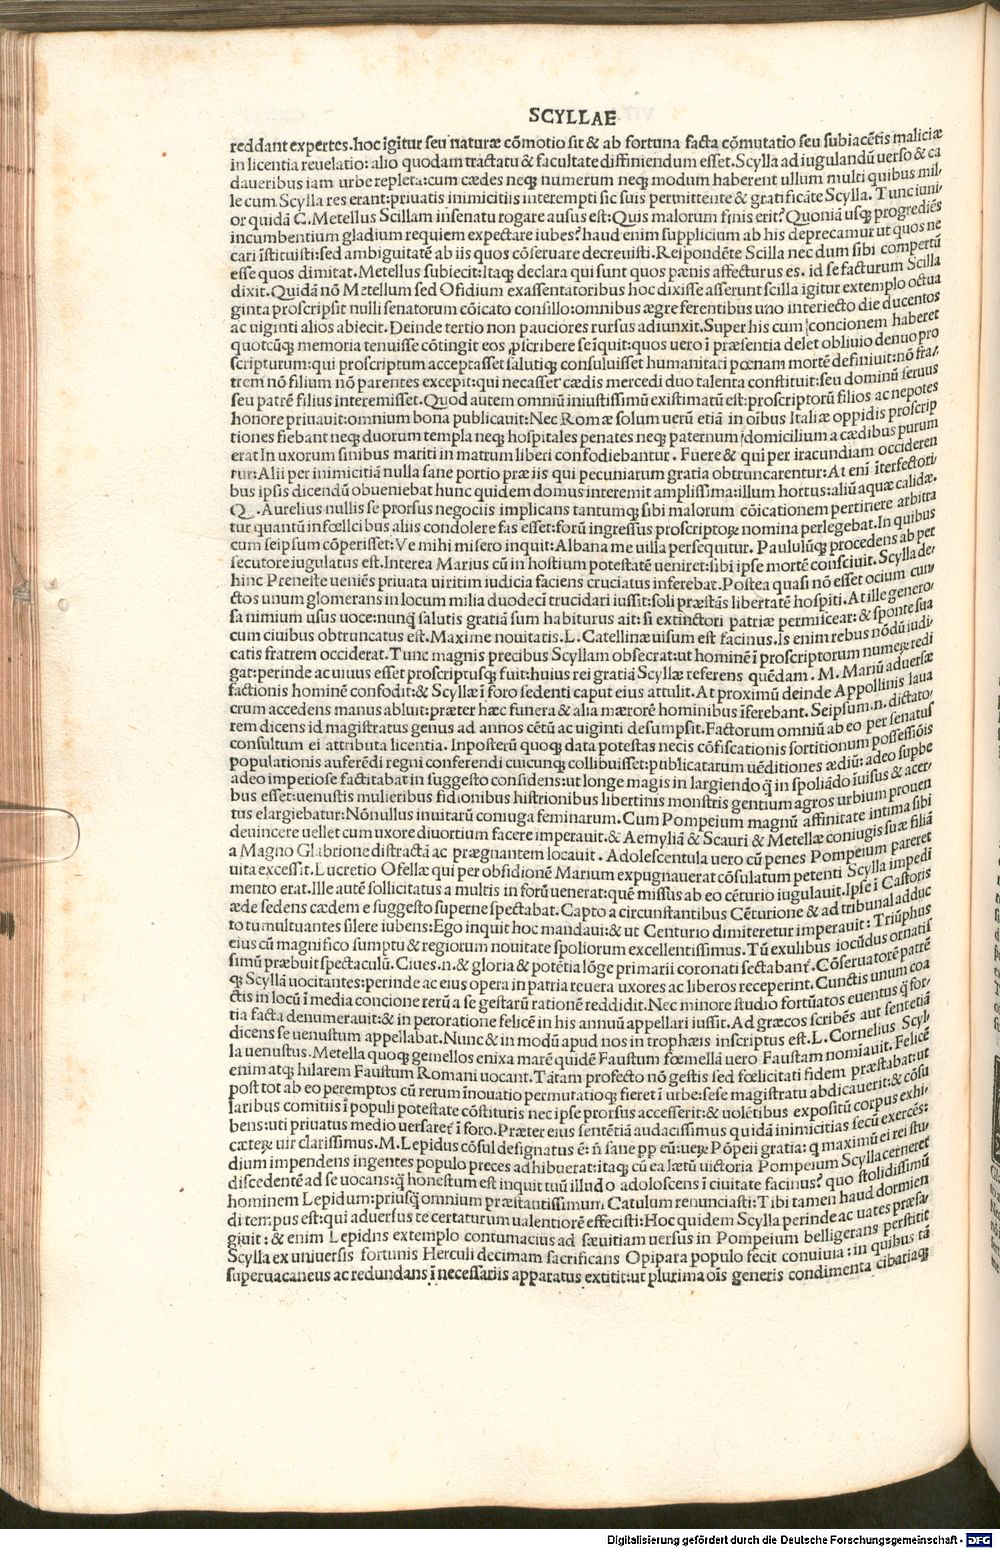 SCYLLAE
reddant expertes.hoc igitur seu naturæ cōmotio sit & ab fortuna facta cōmutatio seu subiacētis maliciæ
in licentia reuelatio: alio quodam tractatu & facultate diffiniendum esset.Scylla ad iugulandū uerso & ca
daueribus iam urbe repleta:cum cædes neqꝫ numerum neqꝫ modum haberent ullum multi quibus nul/
le cum Scylla res erant:priuatis inimicitiis interempti sic suis permittente & gratificāte Scylla. Tunc iuni/
or quidā C.Metellus Scillam in senatu rogare ausus est:Quis malorum finis erit? Quoniā usqꝫ progrediēs
incumbentium gladium requiem expectare iubes? haud enim supplicium ab his deprecamur ut quos ne
cari īstituisti:sed ambiguitatē ab iis quos cōseruare decreuisti. Respondēte Scilla nec dum sibi compertū
esse quos dimitat. Metellus subiecit: Itaqꝫ declara qui sunt quos pænis affecturus es. id se facturum Scilla
dixit.Quidā nō Metellum sed Ofidium ex assentatoribus hoc dixisse asserunt scilla igitur extemplo octua
ginta proscripsit nulli senatorum cōicato consilio:omnibus ægre ferentibus uno interiecto die ducentos
ac uiginti alios abiecit. Deinde tertio non pauciores rursus adiunxit. Super his cum concionem haberet
quotcūqꝫ memoria tenuisse cōtingit eos ꝓscribere se īquit: quos uero ī præsentia delet obliuio denuo pro
scripturum: qui proscriptum acceptasset salutiqꝫ consuluisset humanitati pœnam mortē definiuit: nō fra/
trem nō filium nō parentes excepit: qui necasset cædis mercedi duo talenta constituit: seu dominū seruus
seu patrē filius interemisset. Quod autem omniū iniustissimū existimatū est: proscriptorū filios ac nepotes
honore priuauit:omnium bona publicauit: Nec Romæ solum uerū etiā in oībus Italiæ oppidis proscrip
tiones fiebant neqꝫ duorum templa neqꝫ hospitales penates neqꝫ paternum domicilium a cædibus purum
erat In uxorum sinibus mariti in matrum liberi confodiebantur. Fuere & qui per iracundiam occideren
tur: Alii per inimicitiā nulla sane portio præ iis qui pecuniarum gratia obtruncarentur: At eni īterfectori/
bus ipsis dicendū obueniebat hunc quidem domus interemit amplissima: illum hortus: aliū aquæ calidæ.
Q. Aurelius nullis se prorsus negociis implicans tantumqꝫ sibi malorum cōicationem pertinere arbitra
tur quantū infœlicibus aliis condolere fas esset: forū ingressus proscriptoꝝ nomina perlegebat. In quibus
cum seipsum cōperisset: Ve mihi misero inquit: Albana me uilla persequitur. Paululūqꝫ procedens ab per
secutore iugulatus est. Interea Marius cū in hostium potestatē ueniret: sibi ipse mortē consciuit. Scylla de/
hinc Preneste ueniēs priuata uiritim iudicia faciens cruciatus inferebat. Postea quasi nō esset ocium cun/
ctos unum glomerans in locum milia duodecī trucidari iussit: soli præstās libertatē hospiti. At ille genero/
sa nimium usus uoce: nunqꝫ salutis gratiā sum habiturus ait: si extinctori patriæ permiscear: & sponte sua
cum ciuibus obtruncatus est. Maxime nouitatis. L. Catellinæ uisum est facinus. Is enim rebus nōdū iudi/
catis fratrem occiderat. Tunc magnis precibus Scyllam obsecrat: ut hominē ī proscriptorum numeꝝ redi
gat: perinde ac uiuus esset proscriptusqꝫ fuit: huius rei gratiā Scyllæ referens quēdam. M. Mariū aduersæ
factionis hominē confodit: & Scyllæ ī foro sedenti caput eius attulit. At proximū deinde Appollinis laua
crum accedens manus abluit: præter hæc funera & alia mærorē hominibus īferebant. Seipsum.n. dictato/
rem dicens id magistratus genus ad annos cētū ac uiginti desumpsit. Factorum omniū ab eo per senatus
consultum ei attributa licentia. In posterū quoqꝫ data potestas necis cōfiscationis sortitionum possessiōis
populationis auferēdi regni conferendi cuicunqꝫ collibuisset: publicatarum uēditiones ædiū: adeo supbe
adeo imperiose factitabat in suggesto considens: ut longe magis in largiendo q̄ in spoliādo īuisus & acer/
bus esset: uenustis mulieribus fidionibus histrionibus libertinis monstris gentium agros urbium prouen
tus elargiebatur: Nōnullus inuitarū coniuga feminarum. Cum Pompeium magnū affinitate intima sibi
deuincere uellet cum uxore diuortium facere imperauit. & Aemyliā & Scauri & Metellæ coniugis suæ filiā
a Magno Glabrione distractā ac prægnantem locauit. Adolescentula uero cū penes Pompeium pareret
uita excessit. Lucretio Ofellæ qui per obsidionē Marium expugnauerat cōsulatum petenti Scylla impedi
mento erat. Ille autē sollicitatus a multis in forū uenerat: quē missus ab eo cēturio iugulauit. Ipse ī Castoris
æde sedens cædem e suggesto superne spectabat. Capto a circunstantibus Cēturione & ad tribunal adduc
to tumultuantes silere iubens: Ego inquit hoc mandaui: & ut Centurio dimiteretur imperauit: Triūphus
eius cū magnifico sumptu & regiorum nouitate spoliorum excellentissimus. Tū exulibus iocūdus ornatis
simū præbuit spectaculū. Ciues.n. & gloria & potētia lōge primarii coronati sectabant̄. Cōseruatorē patrē
qꝫ Scyllā uocitantes: perinde ac eius opera in patria reuera uxores ac liberos receperint. Cunctis unum coa
ctis in locū ī media concione rerū a se gestarū rationē reddidit. Nec minore studio fortūatos euentus q̄ for/
tia facta denumerauit: & in peroratione felicē in his annuū appellari iussit. Ad græcos scribēs aut sentētiā
dicens se uenustum appellabat. Nunc & in modū apud nos in trophæis inscriptus est. L. Cornelius Scyl/
la uenustus. Metella quoqꝫ gemellos enixa marē quidē Faustum fœmellā uero Faustam nomīauit. Felicē
enim atqꝫ hilarem Faustum Romani uocant. Tātam profecto nō gestis sed fœlicitati fidem præstabat: ut
post tot ab eo peremptos cū rerum īnouatio permutatioqꝫ fieret ī urbe: sese magistratu abdicauerit: & cōsu
laribus comitiis ī populi potestate cōstitutis nec ipse prorsus accesserit: & uolētibus expositū corpus exhi/
bens: uti priuatus medio uersaret̄ ī foro. Præter eius sentētiā audacissimus quidā inimicitias secū exercēs:
cæteꝝ uir clarissimus. M. Lepidus cōsul designatus ē: n̄ sane pp eū: ueꝝ Pōpeii gratia: q maximū ei rei stu/
dium impendens ingentes populo preces adhibuerat: itaqꝫ cū ea lætū uictoria Pompeium Scylla cerneret
discedentē ad se uocans: q̄ honestum est inquit tuū illud o adoloscens ī ciuitate facinus? quo stolidissimū
hominem Lepidum: priusq̄ omnium præstantissimum Catulum renunciasti: Tibi tamen haud dormien
di tempus est: qui aduersus te certaturum ualentiorē effecisti: Hoc quidem Scylla perinde ac uates præsa/
giuit: & enim Lepidus extemplo contumacius ad sæuitiam uersus in Pompeium belligerans perstitit
Scylla ex uniuersis fortunis Herculi decimam sacrificans Opipara populo fecit conuiuia: in quibus tā
superuacaneus ac redundans ī necessariis apparatus extitit: ut plurima oīs generis condimenta cibariaqꝫ
Digitalisierung gefördert durch die Deutsche Forschungsgemeinschaft - DFG